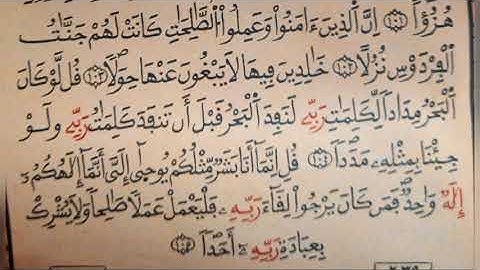 هُزُوًا ۝١٠٦ إِنَّ ٱلَّذِينَ ءَامَنُوا۟ وَعَمِلُوا۟ ٱلصَّٰلِحَٰتِ كَانَتْ لَهُمْ جَنَّٰتُ
ٱلْفِرْدَوْسِ نُزُلًا ۝١٠٧ خَٰلِدِينَ فِيهَا لَا يَبْغُونَ عَنْهَا حِوَلًا ۝١٠٨ قُل لَّوْ كَانَ
ٱلْبَحْرُ مِدَادًا لِّكَلِمَٰتِ رَبِّى لَنَفِدَ ٱلْبَحْرُ قَبْلَ أَن تَنفَدَ كَلِمَٰتُ رَبِّى وَلَوْ
جِئْنَا بِمِثْلِهِۦ مَدَدًا ۝١٠٩ قُلْ إِنَّمَآ أَنَا۠ بَشَرٌ مِّثْلُكُمْ يُوحَىٰٓ إِلَىَّ أَنَّمَآ إِلَٰهُكُمْ
إِلَٰهٌ وَٰحِدٌ فَمَن كَانَ يَرْجُوا۟ لِقَآءَ رَبِّهِۦ فَلْيَعْمَلْ عَمَلًا صَٰلِحًا وَلَا يُشْرِكْ
بِعِبَادَةِ رَبِّهِۦٓ أَحَدًۢا ۝١١٠